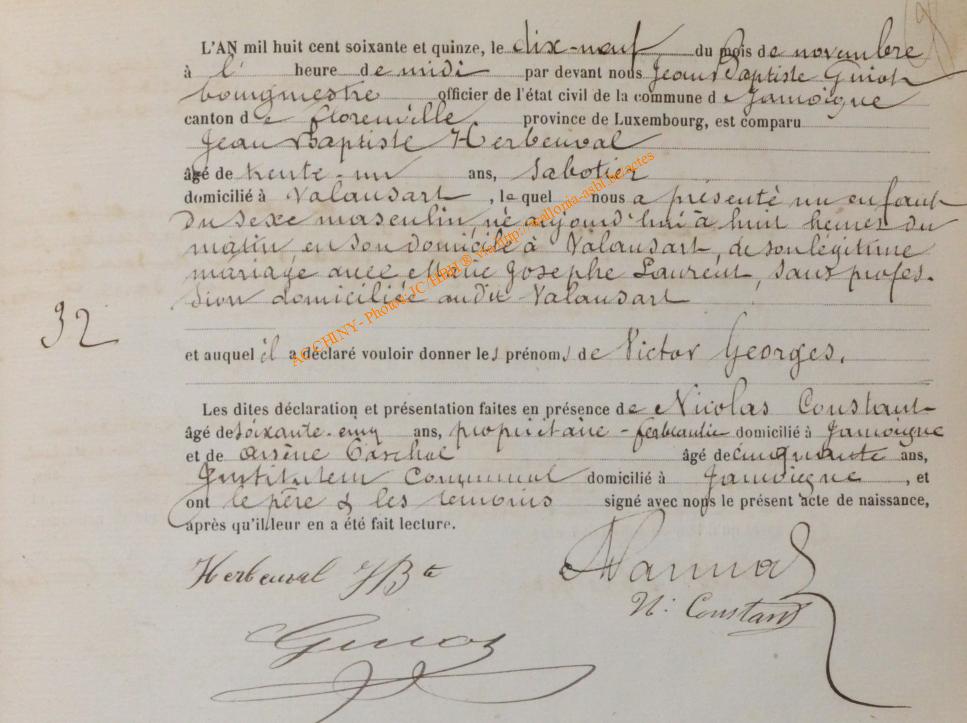 L'AN mil huit cent soixante et quinze, le dix-neuf du mois de novembre
à l' heure de midi par devant nous Jean Baptiste Guiot
bourgmestre officier de l'état civil de la commune de Jamoigne
canton de Florenville province de Luxembourg, est comparu
Jean Baptiste Herbeuval
âgé de trente-un ans, Sabotier
domicilié à Valansart, le quel nous a présenté un enfant
du sexe masculin, né aujourd'hui à huit heures du
matin, en son domicile à Valansart, de son légitime
mariage avec Marie Josephe Laurent, sans profes-
sion domiciliée audit Valansart
32
et auquel il a déclaré vouloir donner les prénoms de Victor Georges.
Les dites déclaration et présentation faites en présence de Nicolas Constant
âgé de soixante-cinq ans, propriétaire - domicilié à Jamoigne
et de Arsène âgé de cinquante ans,
Instituteur Communal domicilié à Jamoigne, et
ont le père & les témoins signé avec nous le présent acte de naissance,
après qu'il leur en a été fait lecture.
Herbeuval JBte
N. Constant
Guiot
AC CHINY - Photos JC/HBH® via http://wallonia-asbl.be/actes